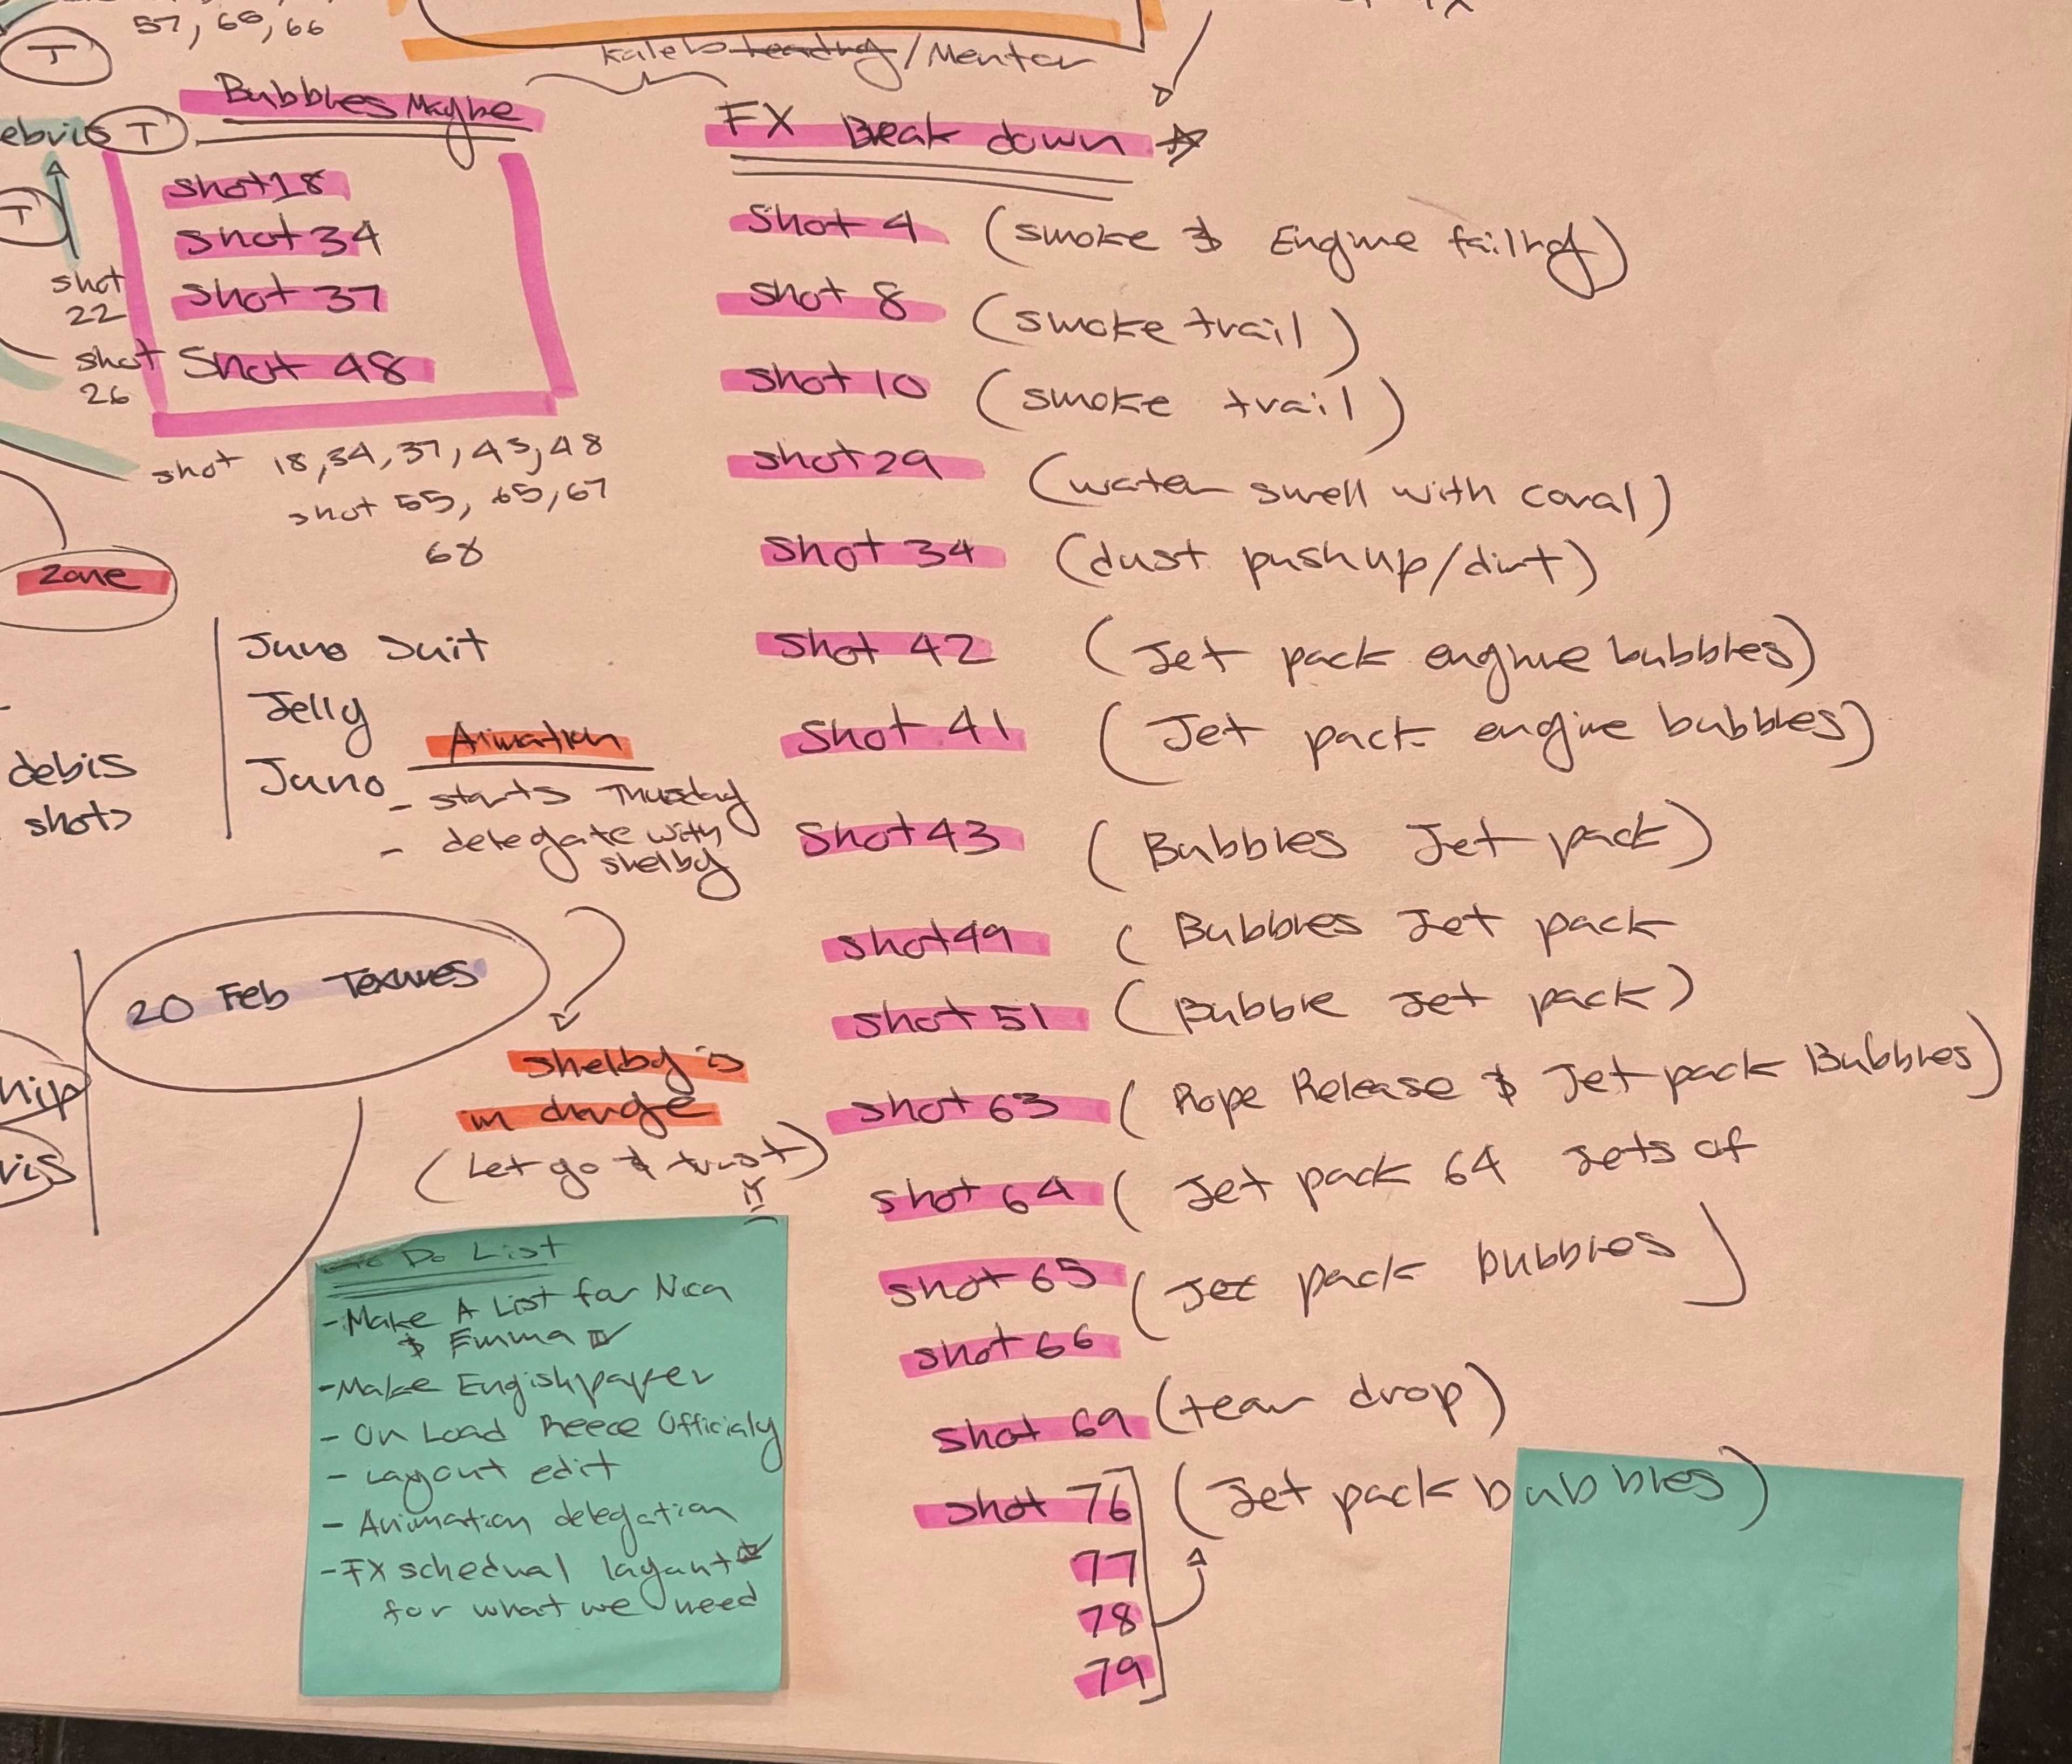 57, 65, 66
T
Kaleb teading/Mentor
Bubbles Maybe
T
shot 18
shot 34
shot 37
shot 48
T
shot
22
shot
26
shot 18, 34, 37, 43, 48
shot 55, 65, 67
68
zone
Juno Suit
Jelly
Juno
debis
shots
Animation
- starts Thursday
- delegate with
shelby
20 Feb Textures
shelby is
in charge
(Let go & trust)
To Do List
- Make A List for Nica
& Emma
- Make Engishpaper
- On Load Reece Officialy
- Layout edit
- Animation delegation
- FX schedual layout
for what we need
FX Break down
Shot 4 (smoke & Engine failing)
shot 8 (smoke trail)
shot 10 (smoke trail)
shot 29 (water swell with coral)
shot 34 (dust push up/dirt)
shot 42 (Jet pack engine bubbles)
shot 41 (Jet pack engine bubbles)
shot 43 (Bubbles Jet pack)
shot 49 (Bubbles Jet pack
shot 51 (Bubble Jet pack)
shot 63 (Rope Release & Jet pack Bubbles)
shot 64 (Jet pack 64 sets of
shot 65 (Jet pack bubbles)
shot 66
shot 69 (tear drop)
shot 76 (Jet pack bubbles)
77
78
79